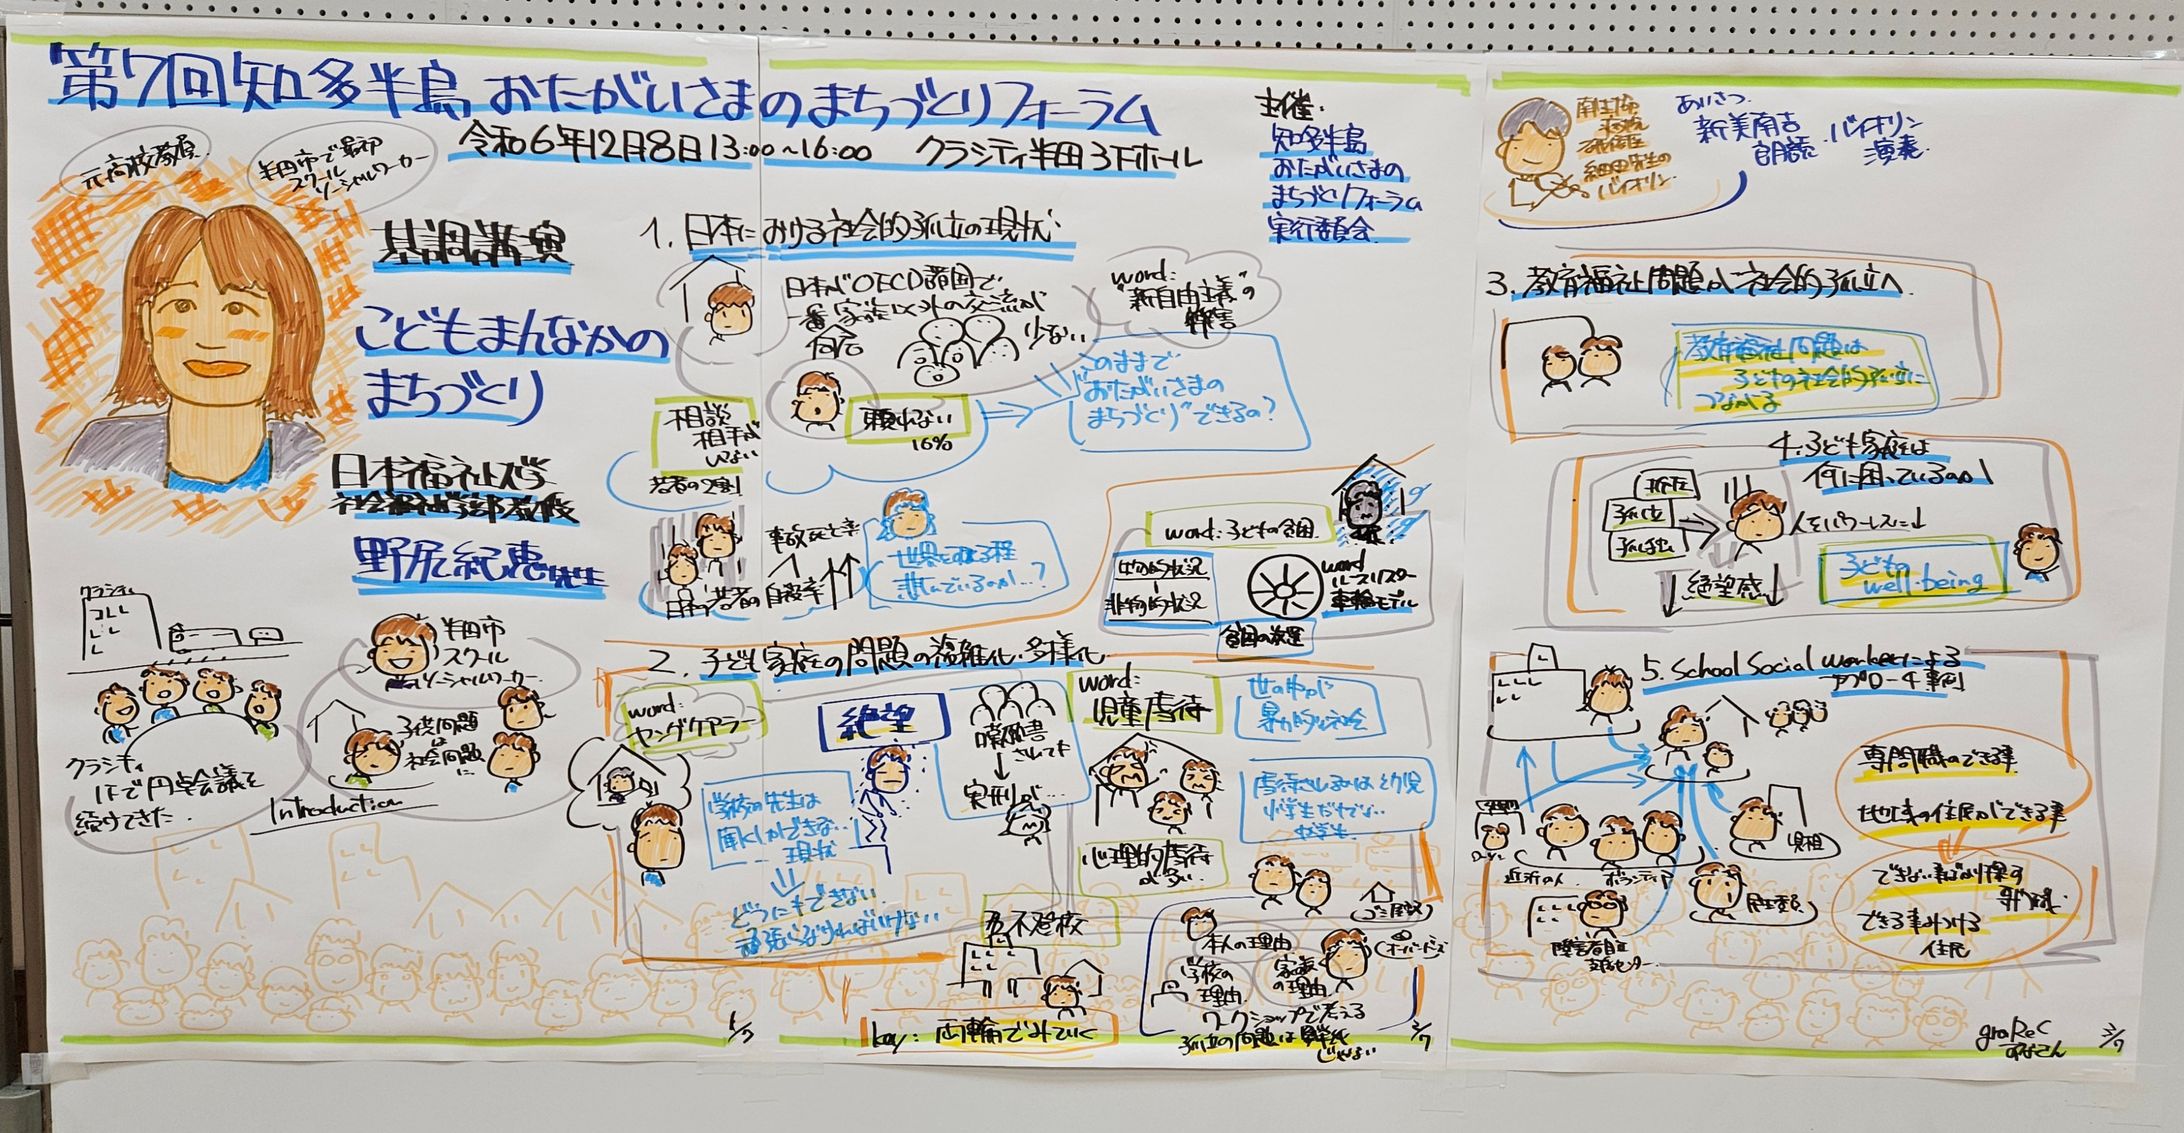 第7回知多半島おたがいさまのまちづくりフォーラム
令和6年12月8日13:00~16:00 クラシティ半田3Fホール
主催:
知多半島
おたがいさまの
まちづくりフォーラム
実行委員会
元高校教員
半田市で最初
スクール
ソーシャルワーカー
基調講演
こどもまんなかの
まちづくり
日本福祉大学
社会福祉学部教授
野尻紀恵先生
クラシティ
クラシティ
1Fで円卓会議を
続けてきた
半田市
スクール
ソーシャルワーカー
子供問題
は
社会問題
に
Introduction
1. 日本における社会的孤立の現状
日本がOECD諸国で
一番家族以外の交流が
少ない
word:
"新自由主義"の
弊害
相談
相手が
いない
若者の2割
頼れない
16%
このままで
"おたがいさまの
まちづくり"できるの?
日本の若者の
事故死亡率
自殺率
悲んでいるのか…?
word:子どもの貧困
物的状況
非物的状況
word
ルースリスター
車輪モデル
2. 子ども家庭の問題の複雑化・多様化
word:
ヤングケアラー
学校の先生は
聞くしかできない
現状
どうにもできない
頑張らなければいけない
絶望
されてた
実刑が…
word:
児童虐待
心理的虐待
が多い
世の中が
暴力的な社会
虐待されるのは幼児
小学生だけでない
中学生
不登校
key:両輪でみていく
本人の理由
学校の
理由
家族
の理由
ゴミ屋敷
オーバードーズ
ワークショップで考える
孤立の問題は
じゃない
1/7
2/7
細田先生の
バイオリン
あいさつ
新美南吉
朗読
バイオリン
演奏
3. 教育福祉問題が社会的孤立へ
教育福祉問題は
子どもの社会的孤立に
つながる
4. 子ども家庭は
何に困っているのか
孤立
人をパワーレスに↓
絶望感
子どもの
well-being
5. School Social workerによる
アプローチ事例
近所の人
ボランティア
児相
民生委員
障害者自立
支援センター
専門職のできる事
地域の住民ができる事
できない事ばかり探す
専門職
できる事みつける
住民
graRec
3/7